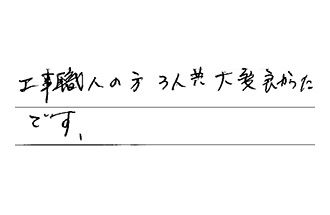 工事職人の方 3人共 大変良かた
です、